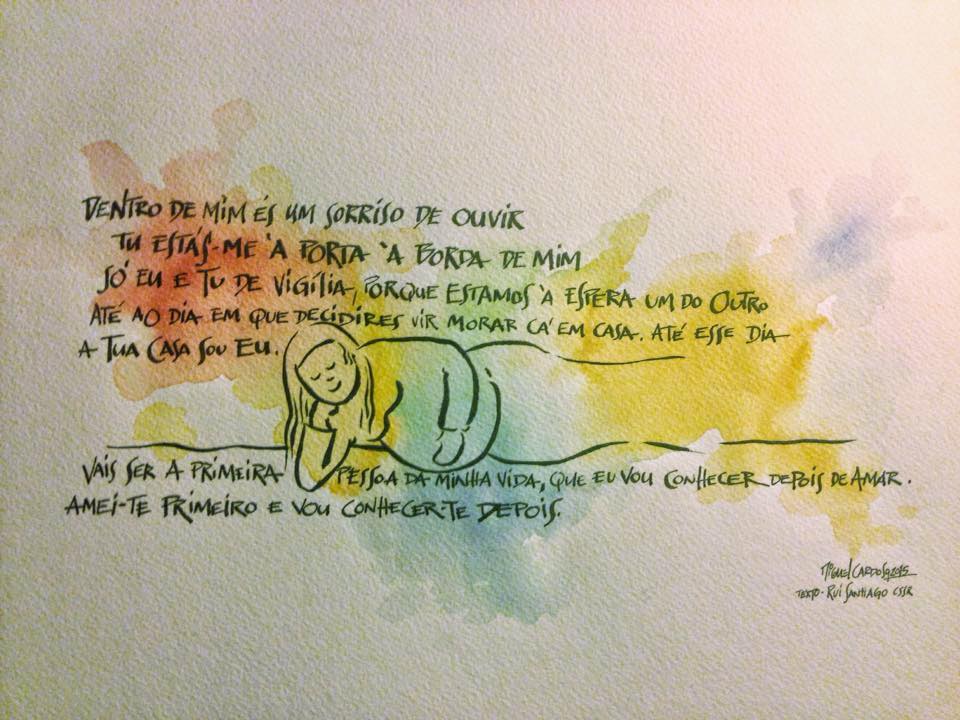 DENTRO DE MIM ÉS UM SORRISO DE OUVIR
TU ESTÁS-ME À PORTA À BORDA DE MIM
SÓ EU E TU DE VIGÍLIA, PORQUE ESTAMOS À ESPERA UM DO OUTRO
ATÉ AO DIA EM QUE DECIDIRES VIR MORAR CÁ EM CASA. ATÉ ESSE DIA
A TUA CASA SOU EU.
VAIS SER A PRIMEIRA PESSOA DA MINHA VIDA, QUE EU VOU CONHECER DEPOIS DE AMAR.
AMEI-TE PRIMEIRO E VOU CONHECER-TE DEPOIS.
MIGUEL CARDOSO, 2015
TEXTO - RUI SANTIAGO CSSR